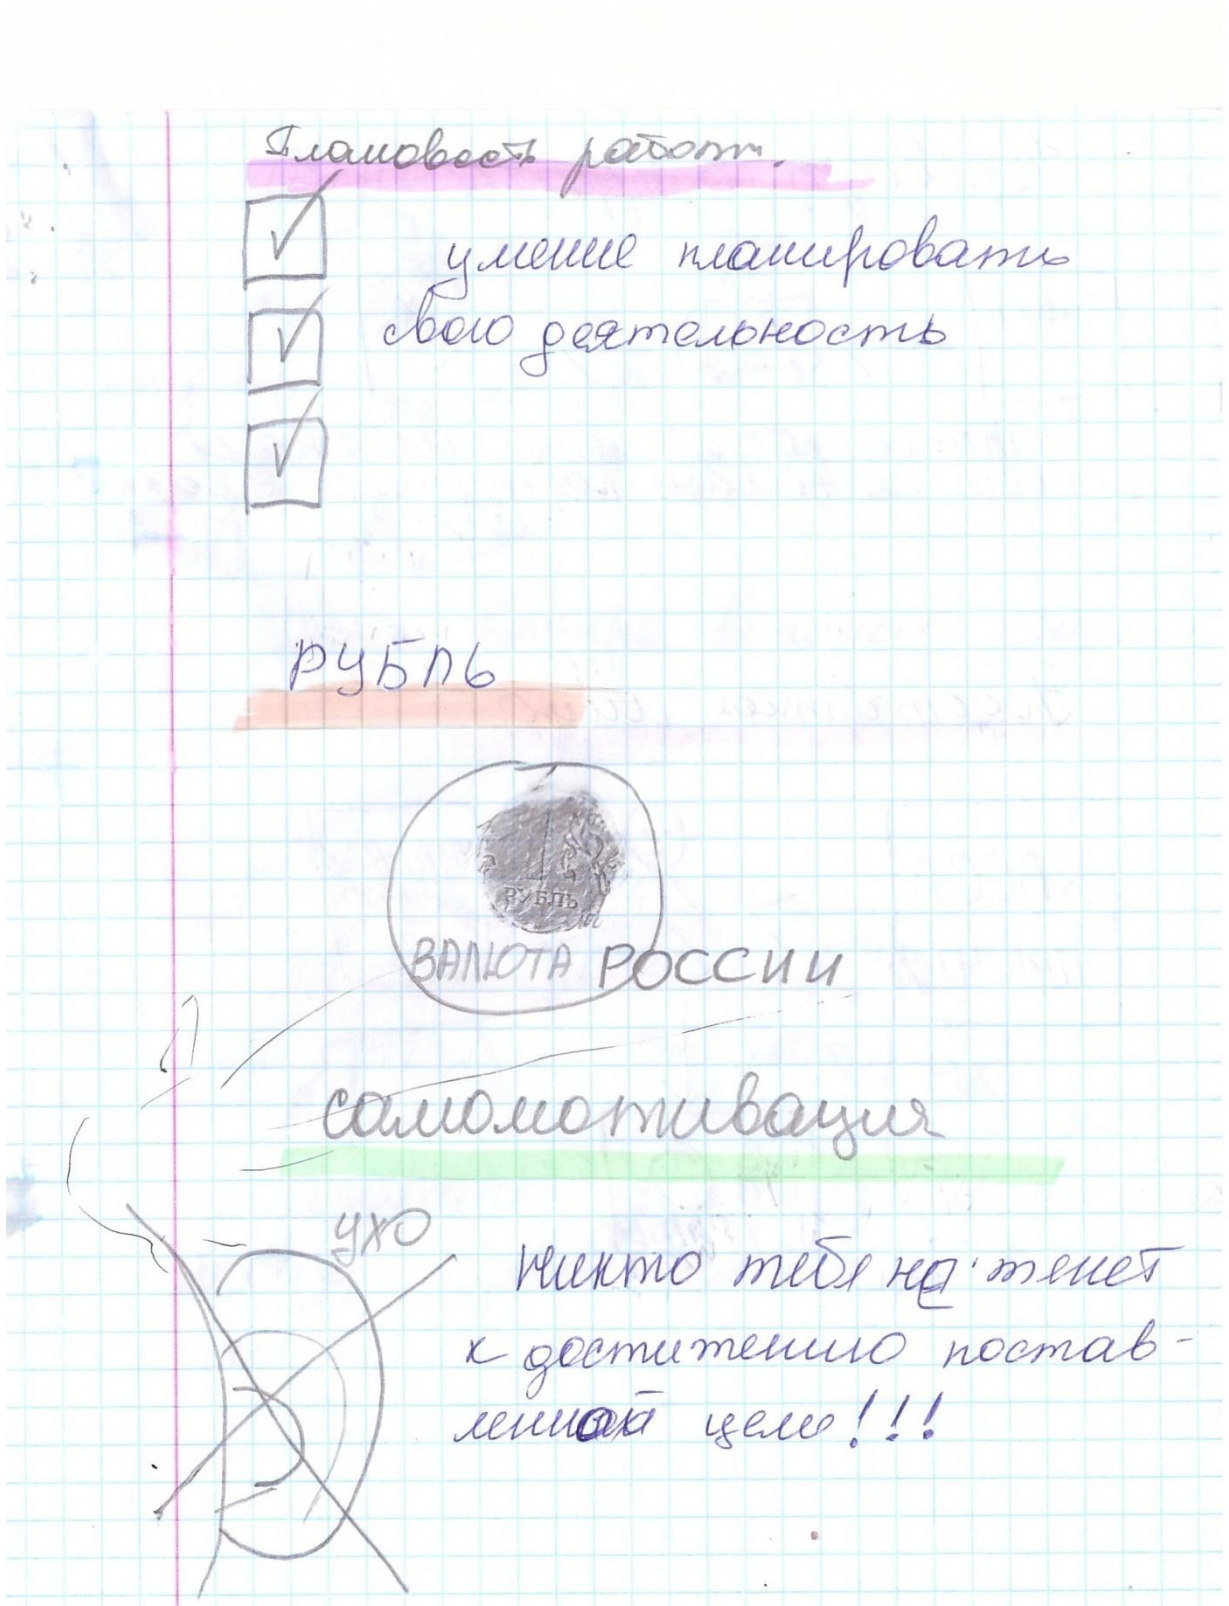 Плановость работы.
умение планировать
свою деятельность
РУБЛЬ
1
РУБЛЬ
ВАЛЮТА РОССИИ
самомотивация
УХО
Никто тебя не тянет
к достижению постав-
ленной цели!!!